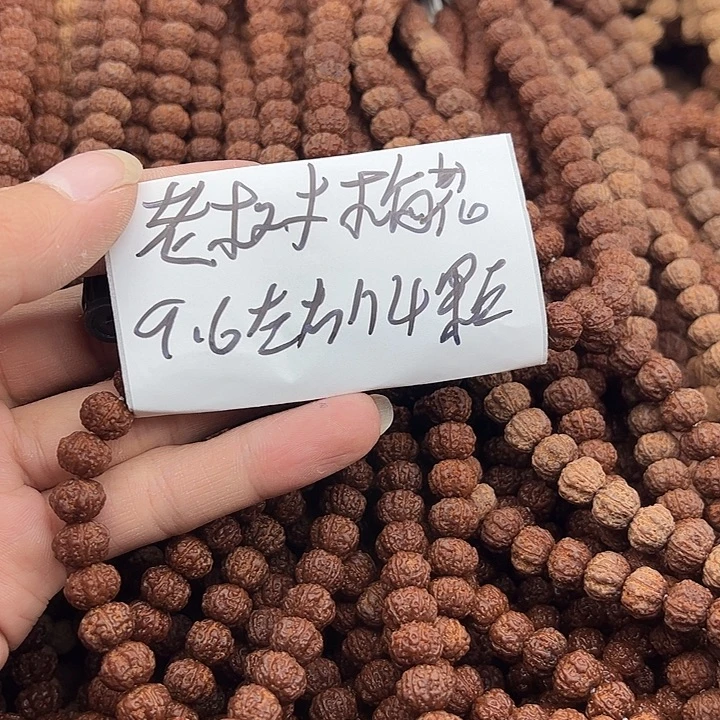 老树梅花
9.6左右74颗